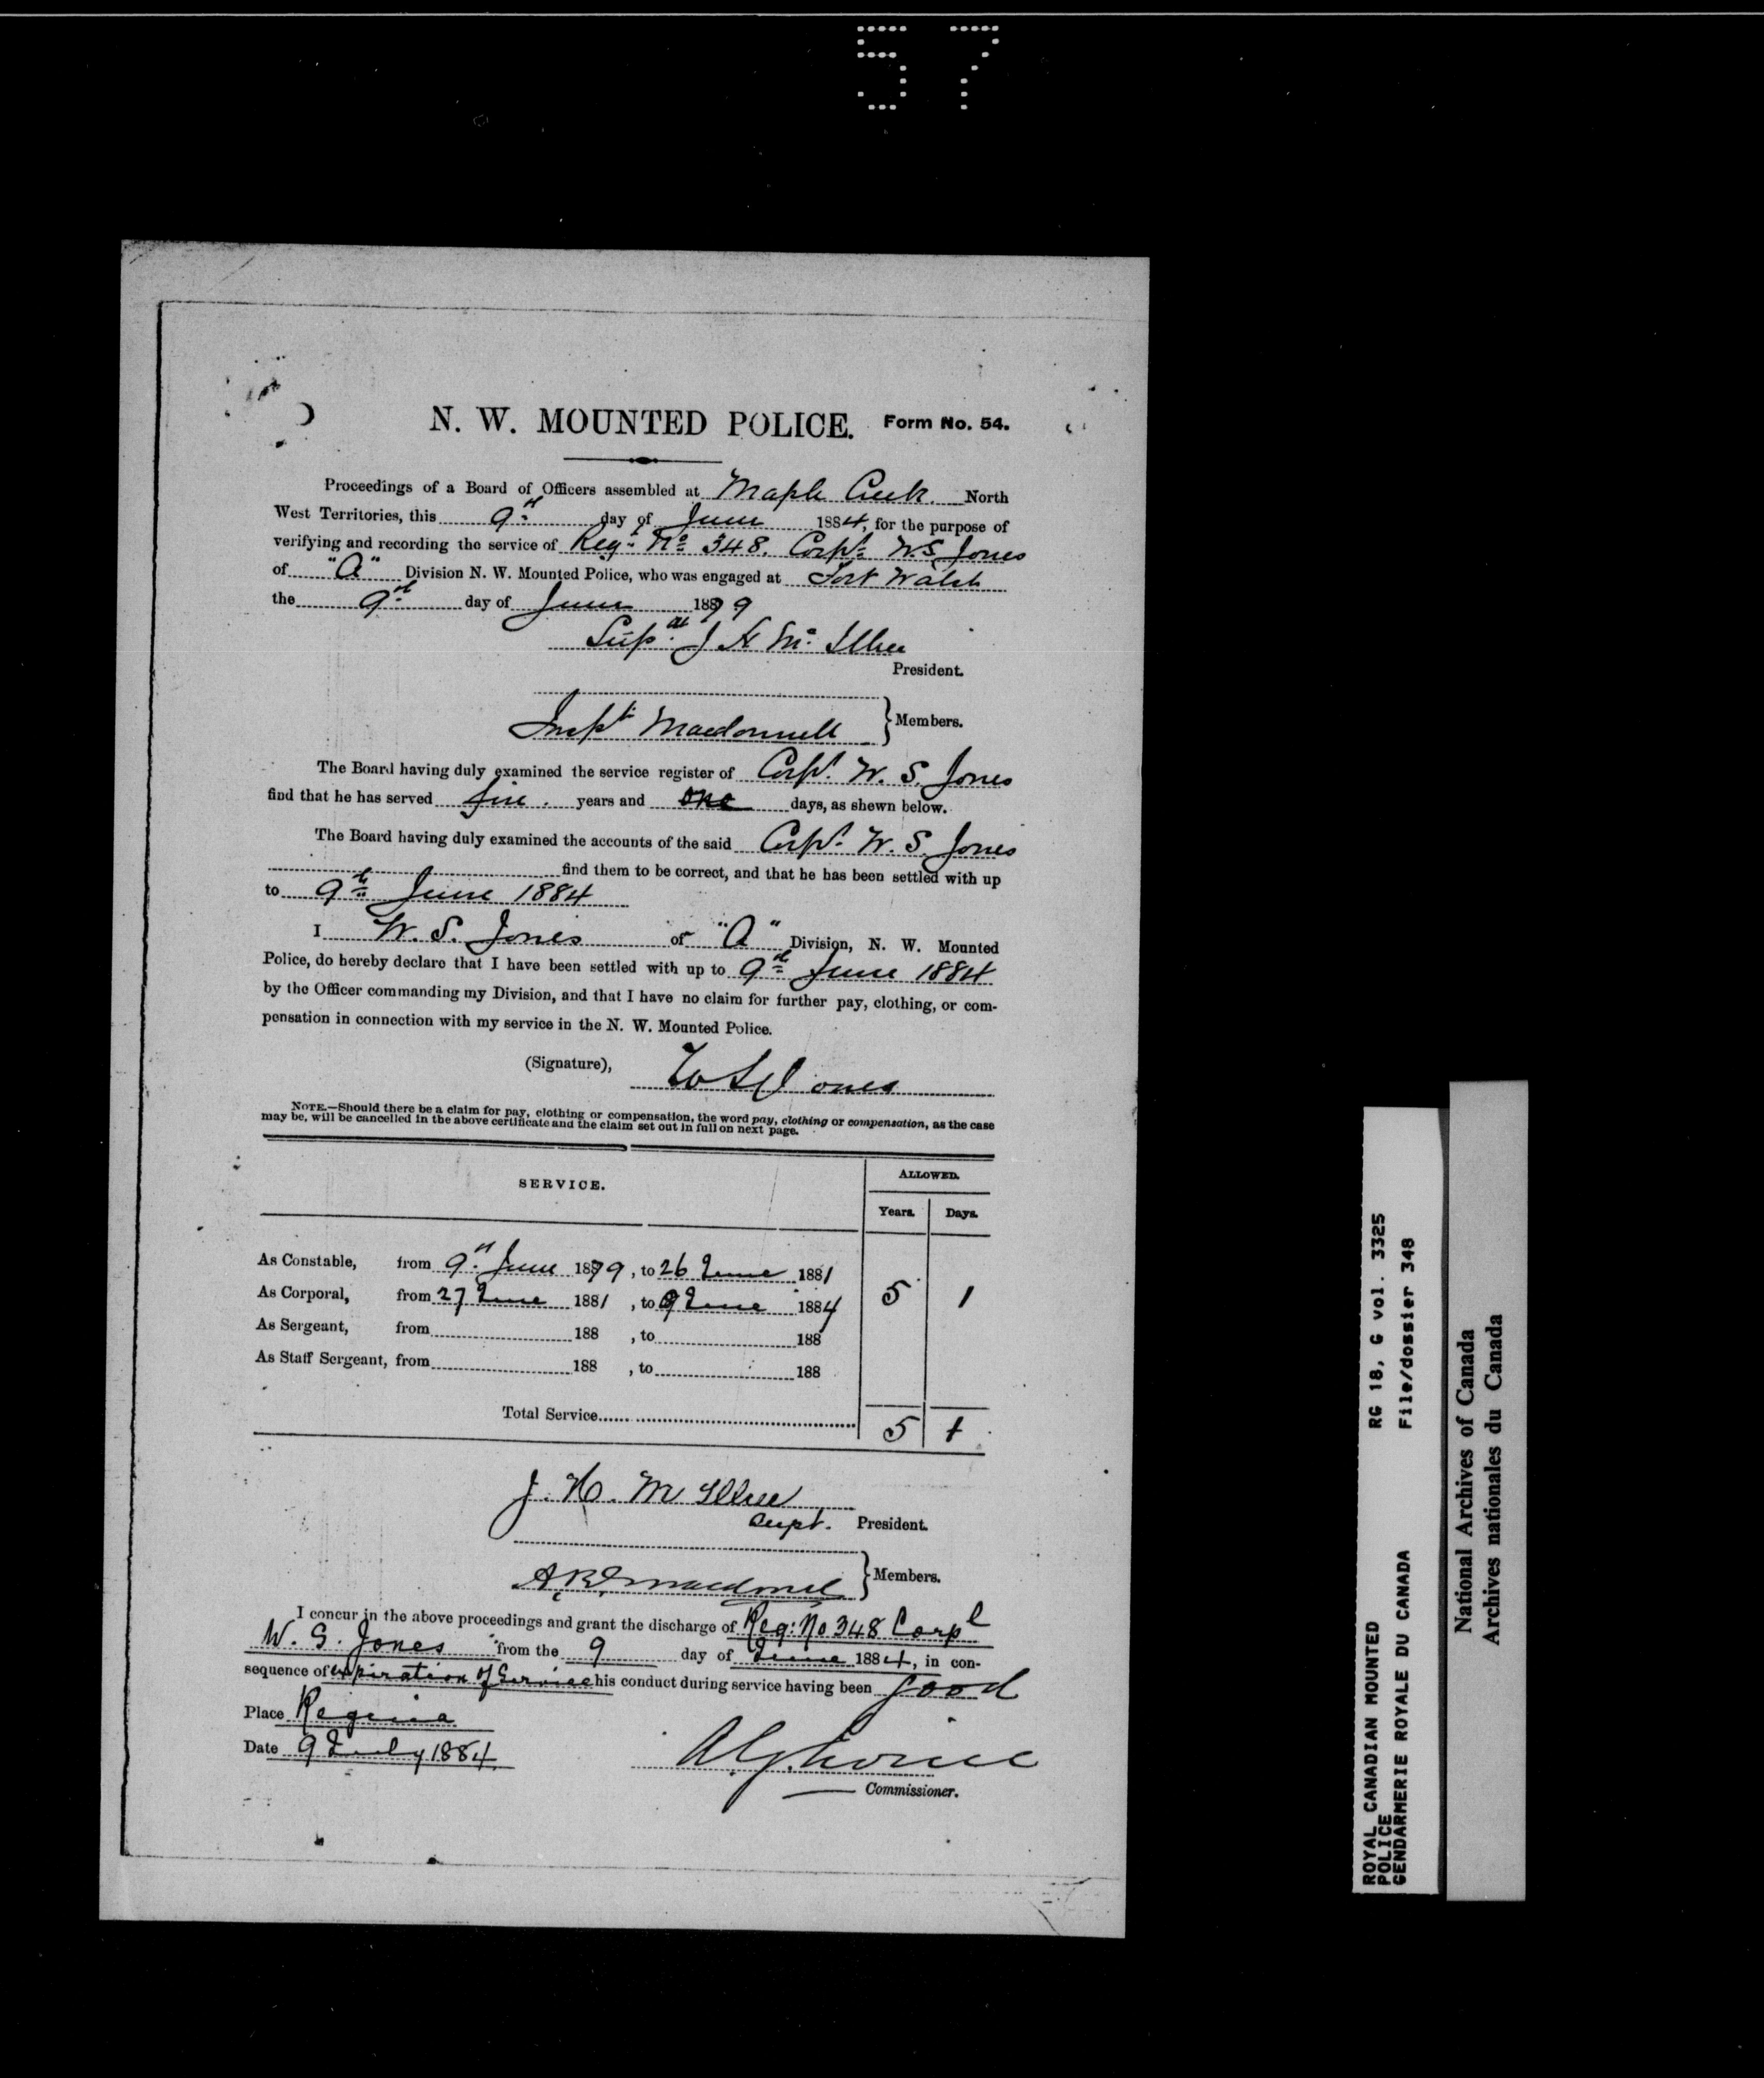 57
N. W. MOUNTED POLICE. Form No. 54.
Proceedings of a Board of Officers assembled at Maple Creek. North
West Territories, this 9th day of June 1884, for the purpose of
verifying and recording the service of Regtl No 348. Corpl W.S. Jones
of "A" Division N. W. Mounted Police, who was engaged at Fort Walsh
the 9th day of June 1879
Supt J H McIllree
President.
Inspt Macdonnell } Members.
The Board having duly examined the service register of Corpl. W. S. Jones
find that he has served five years and one days, as shewn below.
The Board having duly examined the accounts of the said Corpl. W. S. Jones
find them to be correct, and that he has been settled with up
to 9th June 1884
I W. S. Jones of "A" Division, N. W. Mounted
Police, do hereby declare that I have been settled with up to 9th June 1884
by the Officer commanding my Division, and that I have no claim for further pay, clothing, or com-
pensation in connection with my service in the N. W. Mounted Police.
(Signature), W S Jones
NOTE.—Should there be a claim for pay, clothing or compensation, the word pay, clothing or compensation, as the case
may be, will be cancelled in the above certificate and the claim set out in full on next page.
SERVICE. ALLOWED.
Years. Days.
As Constable, from 9th June 1879, to 26 June 1881
As Corporal, from 27 June 1881, to 9 June 1884 5 1
As Sergeant, from 188 , to 188
As Staff Sergeant, from 188 , to 188
Total Service 5 1
J. H. McIllree
Supt. President.
A.R. Macdonell } Members.
I concur in the above proceedings and grant the discharge of Reg: No 348 Corpl
W. S. Jones from the 9 day of June 1884, in con-
sequence of expiration of Service his conduct during service having been good
Place Regina
Date 9 July 1884.
A.G. Irvine
Commissioner.
ROYAL CANADIAN MOUNTED RG 18, G vol. 3325
POLICE
GENDARMERIE ROYALE DU CANADA File/dossier 348
National Archives of Canada
Archives nationales du Canada